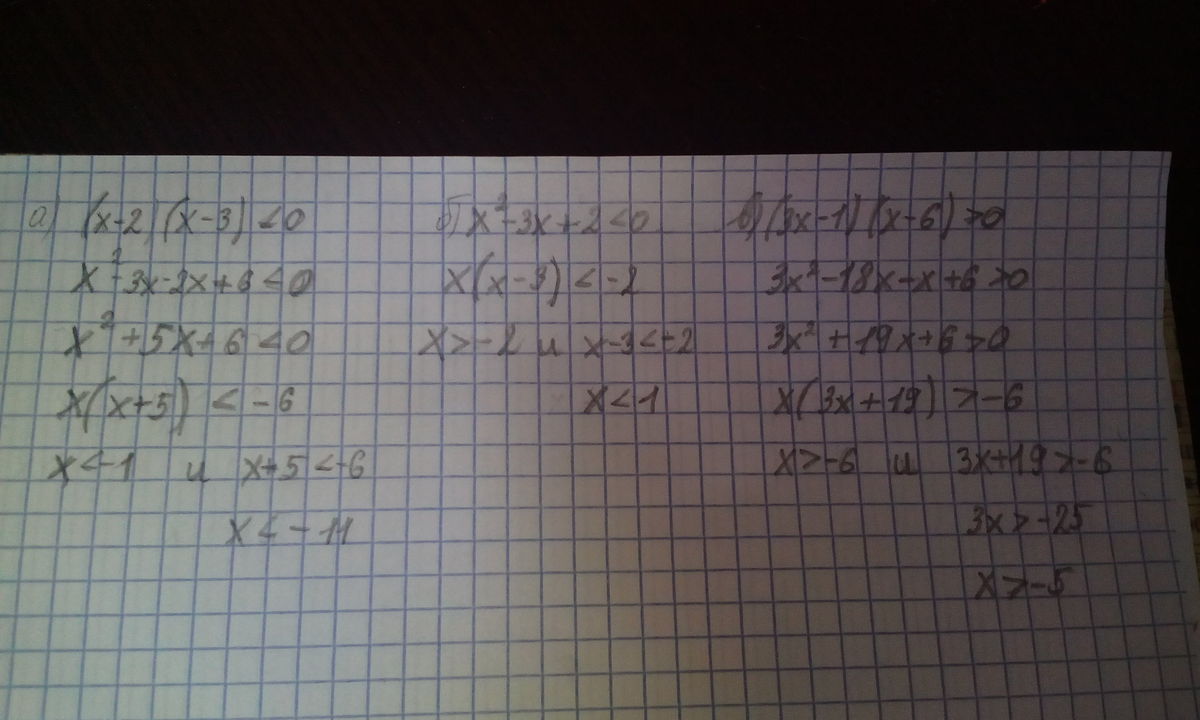 а) (x-2)(x-3)<0
x²-3x-2x+6<0
x²+5x+6<0
x(x+5) < -6
x<-1 и x+5<-6
x<-11
б) x²-3x+2<0
x(x-3)<-2
x>-2 и x-3<-2
x<1
в) (3x-1)(x-6)>0
3x²-18x-x+6>0
3x²+19x+6>0
x(3x+19)>-6
x>-6 и 3x+19>-6
3x>-25
x>-5